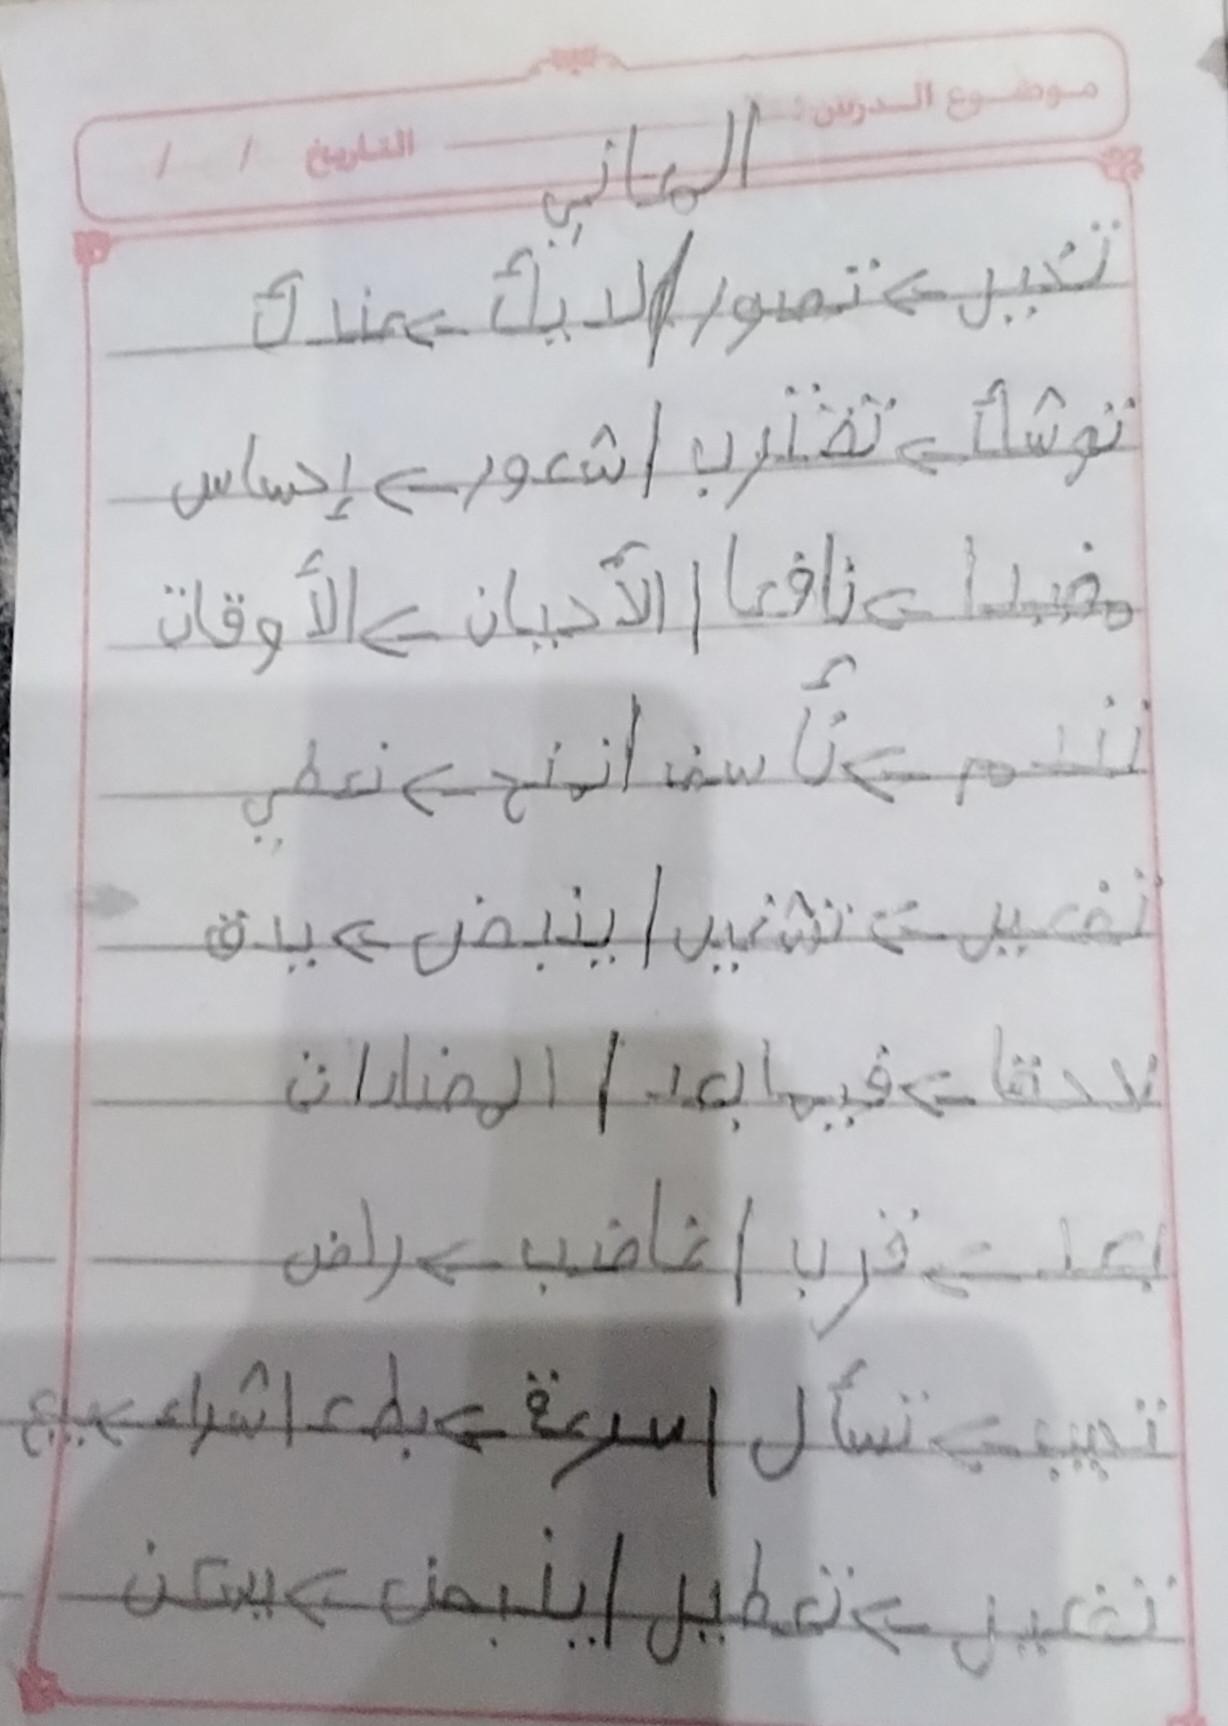 موضوع الدرس: التاريخ / /
المعاني
تخيل → تصور / لديك → عندك
توشك → تقترب / شعور → إحساس
مفيدا → نافعا / الأحيان → الأوقات
نندم → نأسف / نمنح → نعطي
تفعيل → تشغيل / ينبض → يدق
لاحقا → فيما بعد / المضادات
بعد → قرب / غاضب → راض
تجيب → تسأل / سرعة → بطء / شراء → بيع
تفعيل → تعطيل / ينبض → يسكن